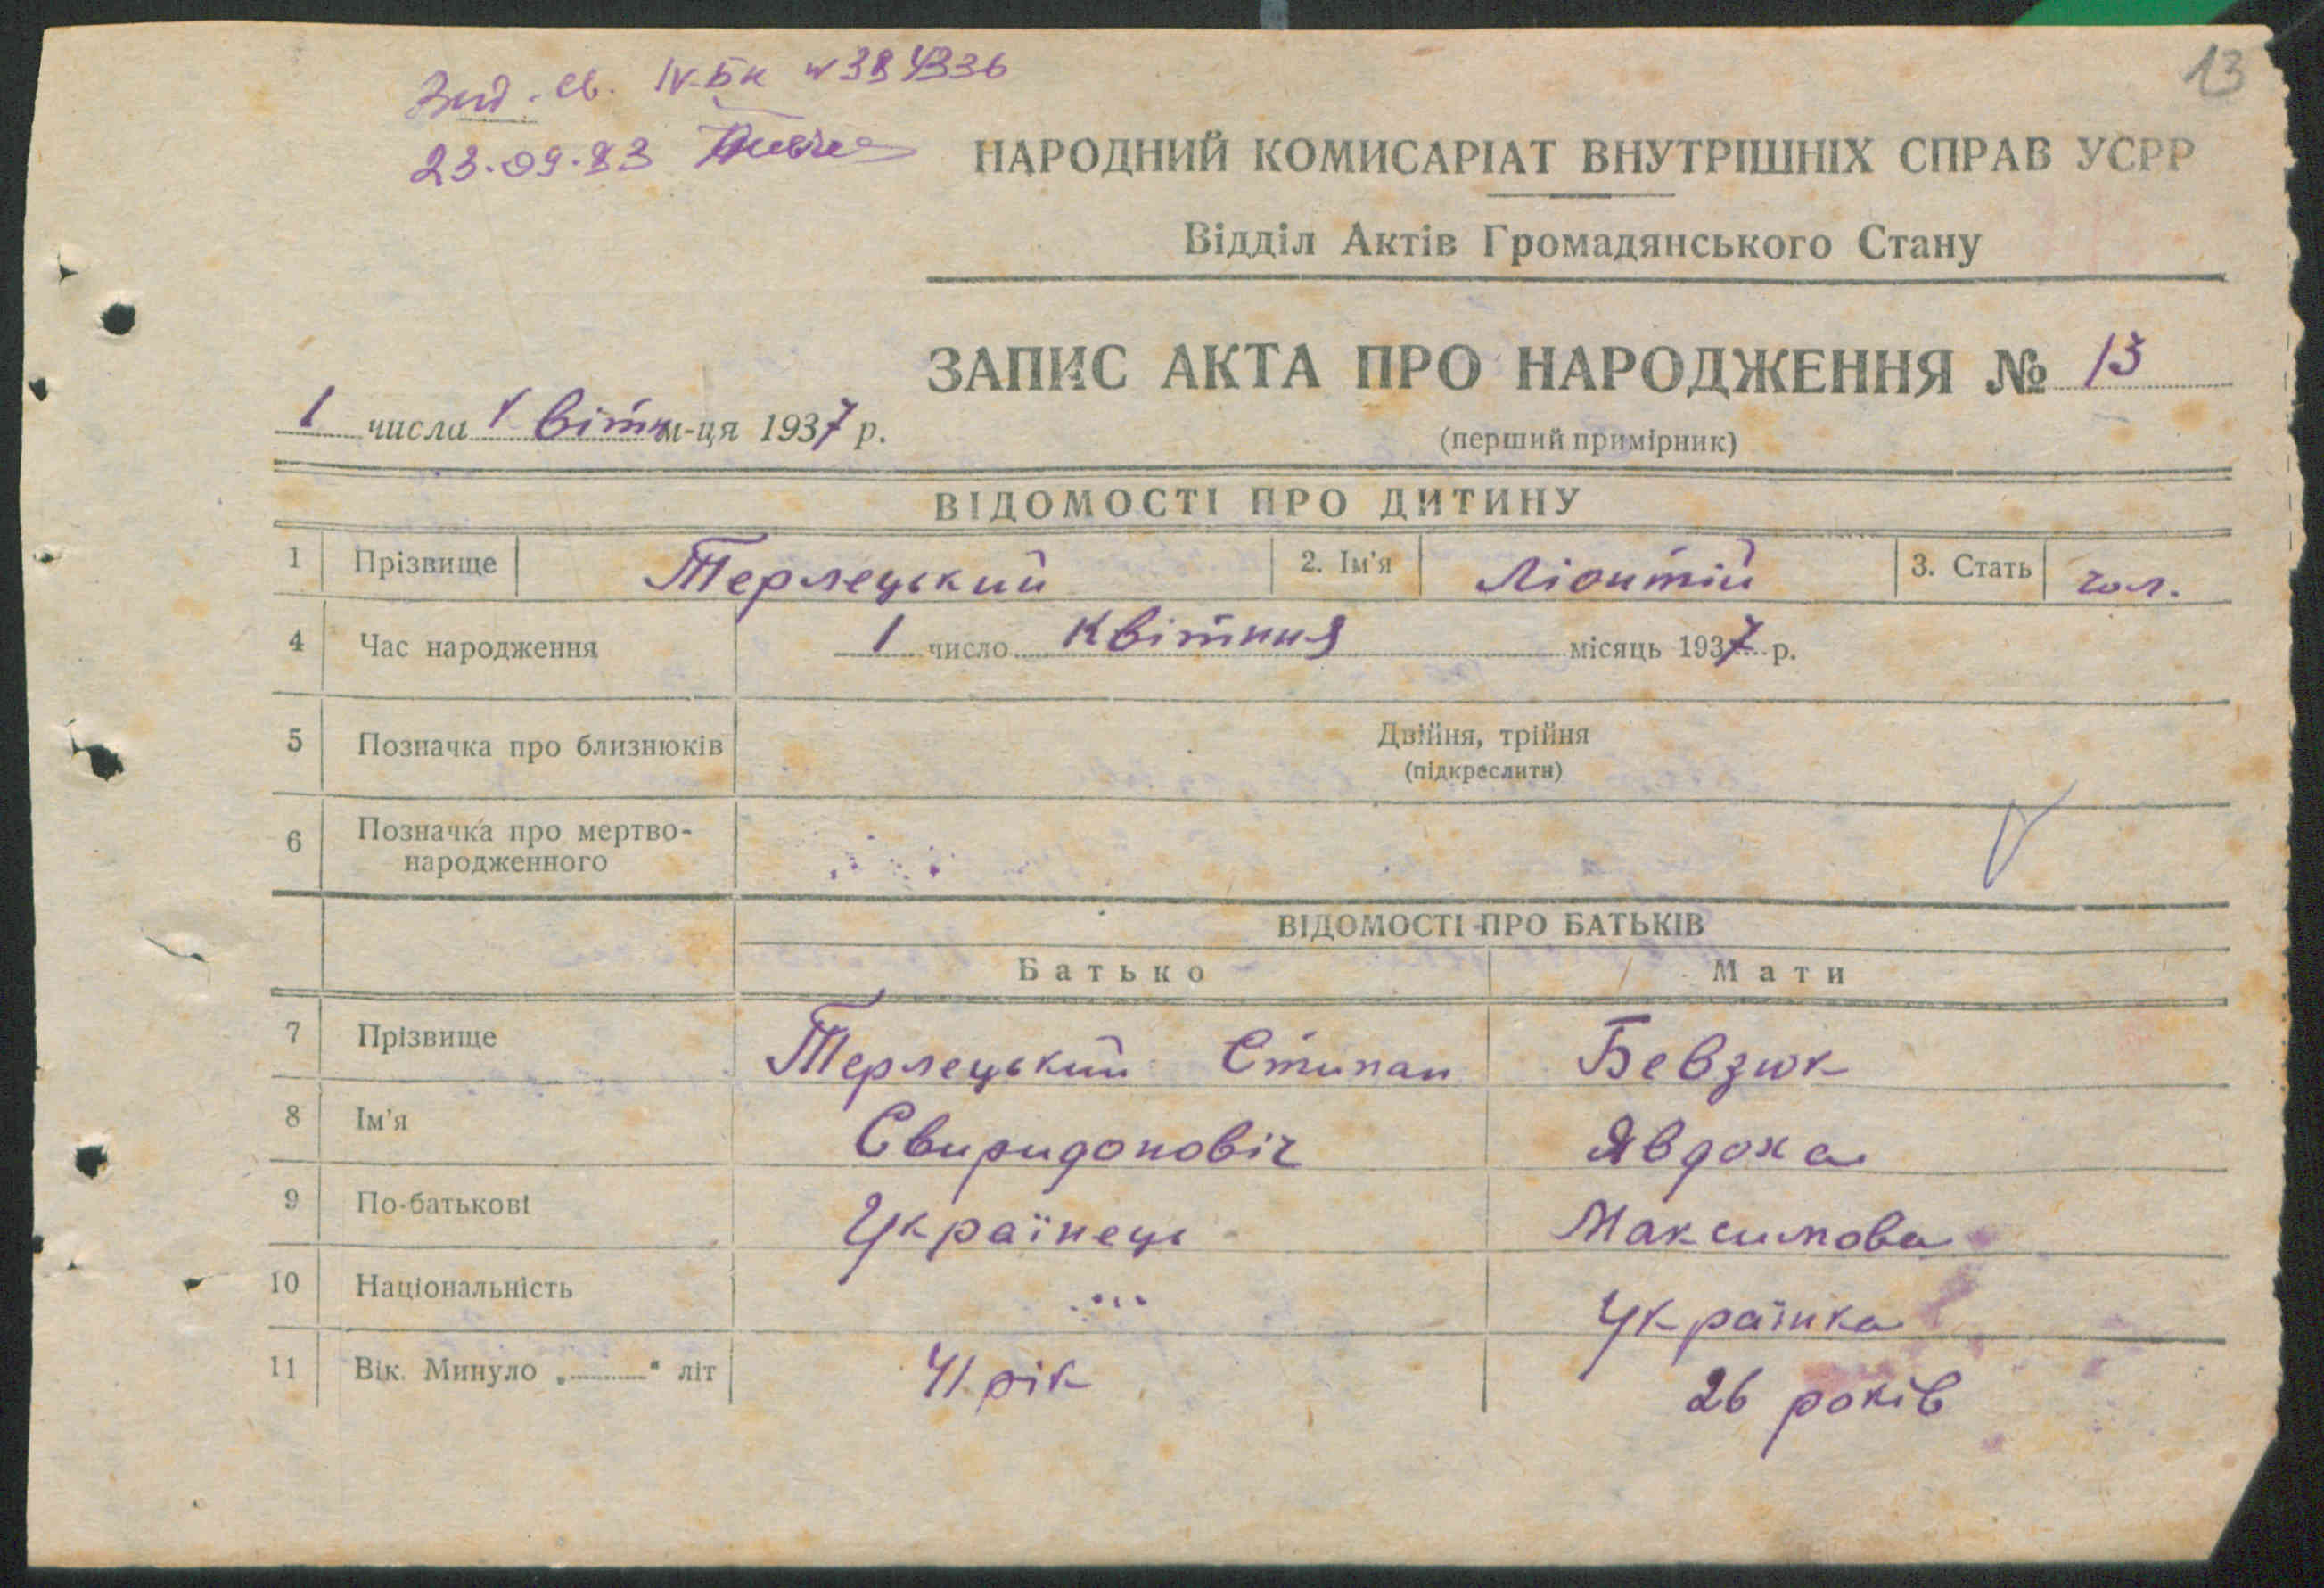 13
Вид. св. IV-БК № 384336
23.09.83
НАРОДНИЙ КОМИСАРІАТ ВНУТРІШНІХ СПРАВ УСРР
Відділ Актів Громадянського Стану
ЗАПИС АКТА ПРО НАРОДЖЕННЯ № 13
1 числа Квітн м-ця 1937 р.
(перший примірник)
ВІДОМОСТІ ПРО ДИТИНУ
1 Прізвище Терлецький 2. Ім'я Ліонтій 3. Стать чол.
4 Час народження 1 число Квітння місяць 1937 р.
5 Позначка про близнюків Двійня, трійня
(підкреслити)
6 Позначка про мертво-
народженного
ВІДОМОСТІ ПРО БАТЬКІВ
Батько Мати
7 Прізвище Терлецький Стипан Бевзюк
8 Ім'я Свиридонович Явдоха
9 По-батькові Українець Максимова
10 Національність Українка
11 Вік. Минуло „ “ літ 41 рік 26 років